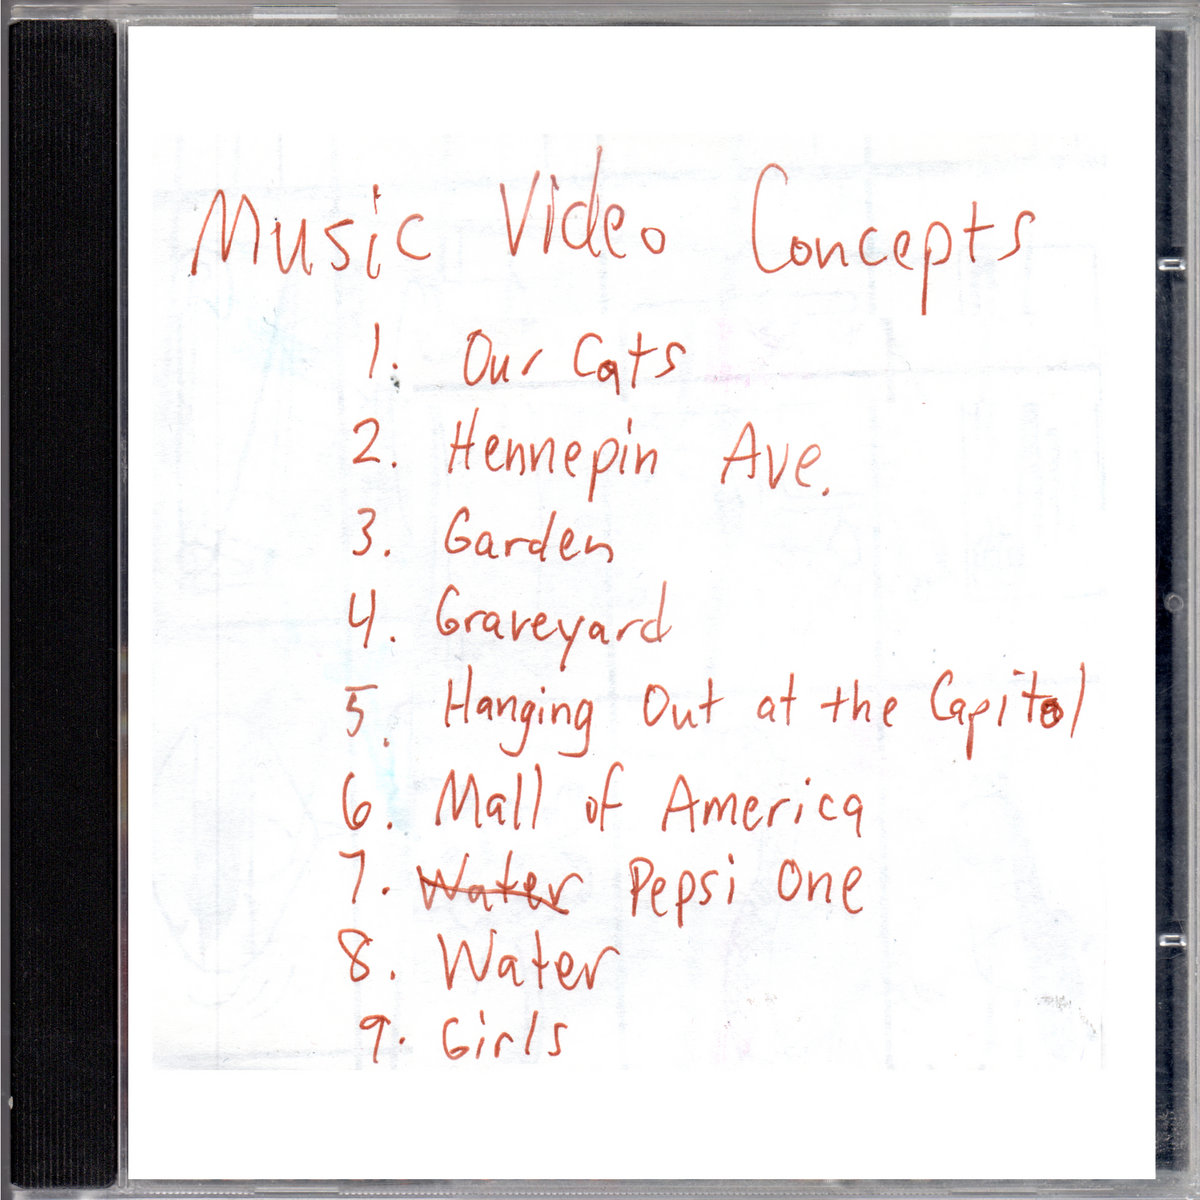 Music Video Concepts
1. Our Cats
2. Hennepin Ave.
3. Garden
4. Graveyard
5. Hanging Out at the Capitol
6. Mall of America
7. Water Pepsi One
8. Water
9. Girls